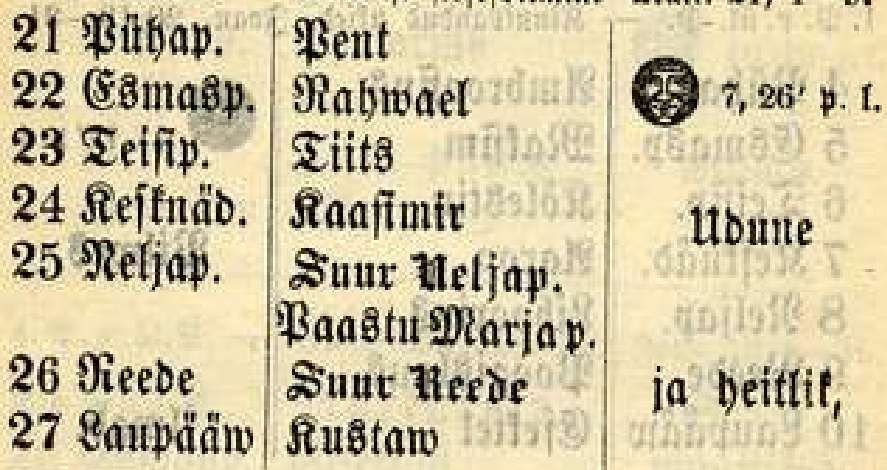 21 Pühap. Pent
22 Esmasp. Rahwael 7, 26' p. l.
23 Teisip. Tiits
24 Kesknäd. Kaasimir Udune
25 Neljap. Suur Neljap.
Paastu Marja p.
26 Reede Suur Reede ja heitlik,
27 Laupääw Kustaw